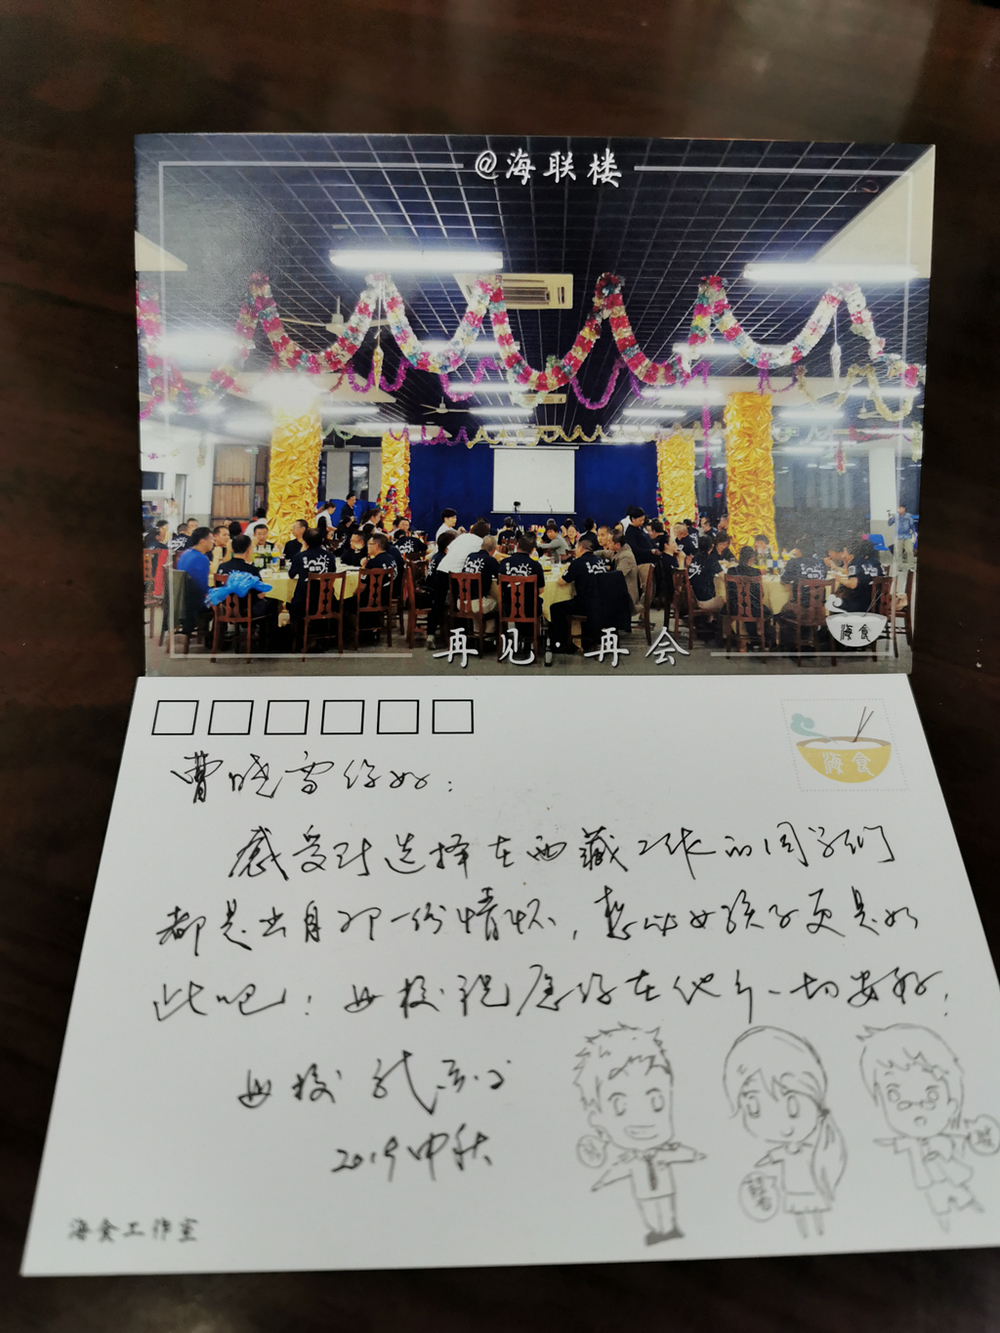 @海联楼
海食
再见·再会
海食
曹晓雪你好：
感受到选择在西藏工作的同学们
都是出自那一份情怀，想必女孩子更是如
此吧！母校祝愿你在他乡一切安好！
母校
2019中秋
海食工作室